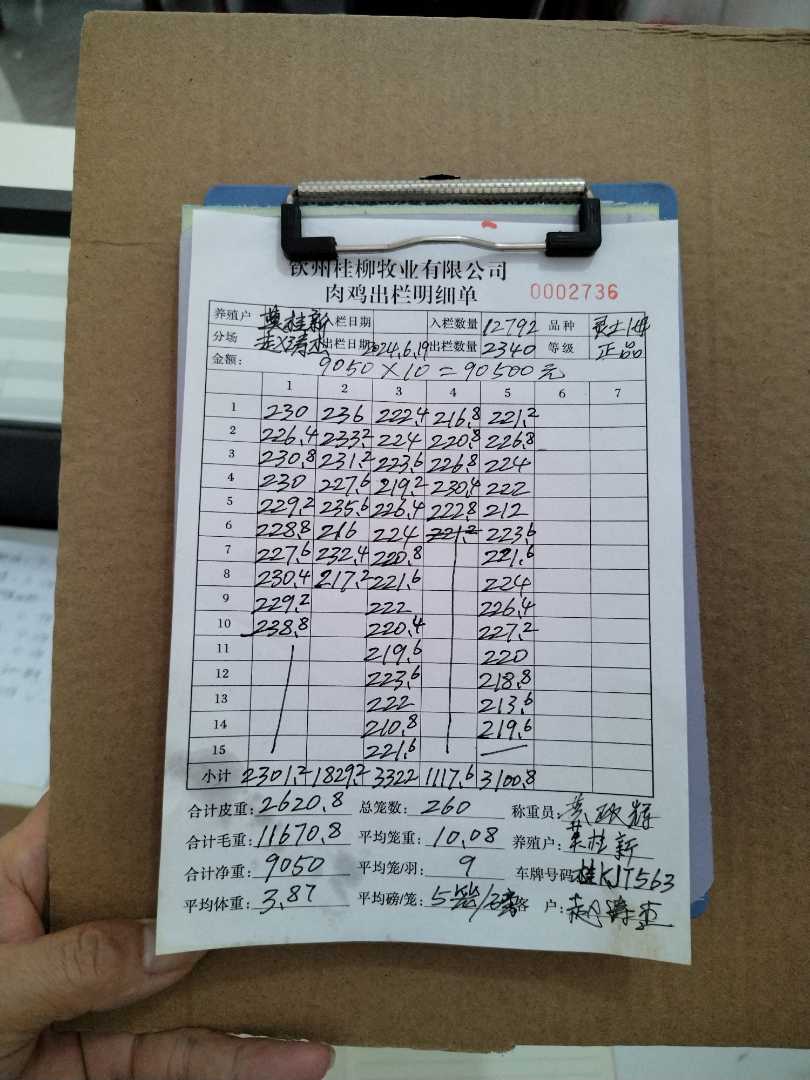 钦州桂柳牧业有限公司
肉鸡出栏明细单 0002736
养殖户 莫桂新 入栏日期 入栏数量 12792 品种 灵土1母
分场 赵涛杰 出栏日期 2024.6.19 出栏数量 2340 等级 正品
金额: 9050×10=90500元
1 2 3 4 5 6 7
1 230 236 222.4 216.8 221.2
2 226.4 233.2 224 220.8 226.8
3 230.8 231.2 223.6 226.8 224
4 230 227.6 219.2 230.4 222
5 229.2 235.6 226.4 222.8 212
6 228.8 216 224 221.2 223.6
7 227.6 232.4 220.8 221.6
8 230.4 217.2 221.6 224
9 229.2 222 226.4
10 238.8 220.4 227.2
11 219.6 220
12 223.6 218.8
13 222 213.6
14 210.8 219.6
15 221.6
小计 2301.2 1829.2 3322 1117.6 3100.8
合计皮重: 2620.8 总笼数: 260 称重员:
合计毛重: 11670.8 平均笼重: 10.08 养殖户: 莫桂新
合计净重: 9050 平均笼/羽: 9 车牌号码: 桂KJT563
平均体重: 3.87 平均磅/笼: 5笼/磅 客户: